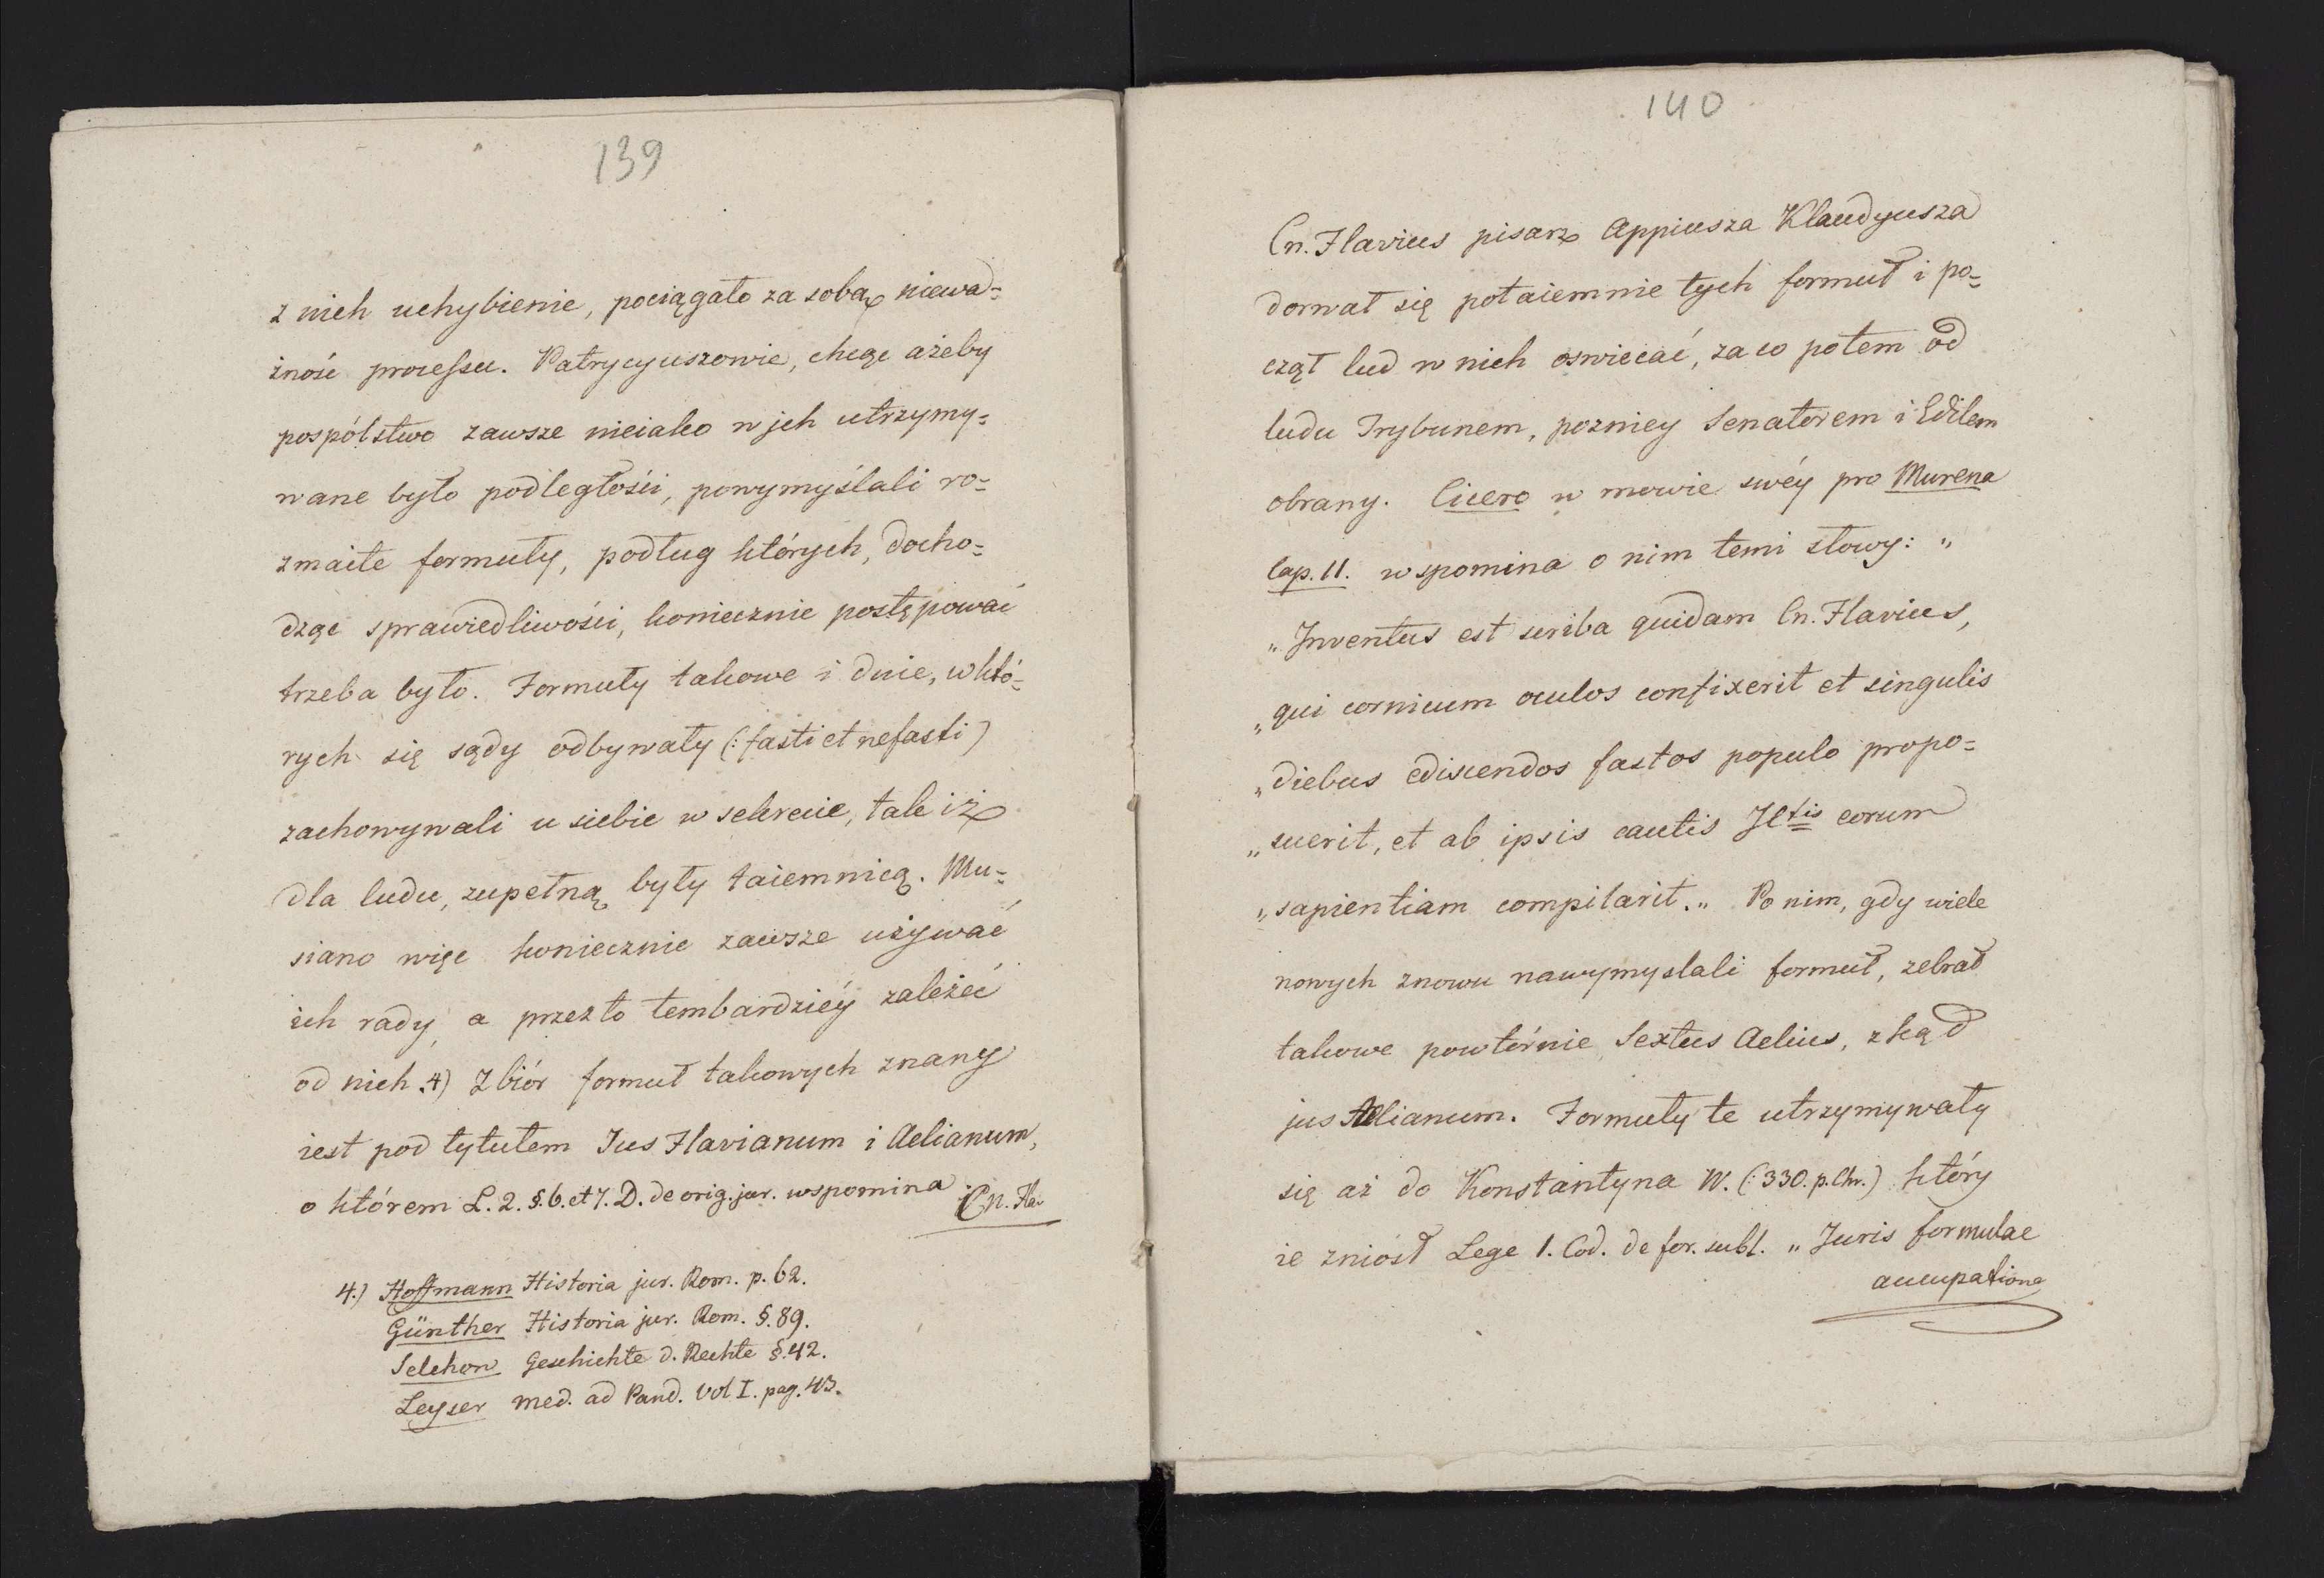 139
z nich uchybienie, pociągało za sobą niewa-
żność processu. Patrycyuszowie, chcąc ażeby
pospólstwo zawsze nieiako w jch utrzymy-
wane było podległości, powymyślali ro-
zmaite formuły, podług których, docho-
dząc sprawiedliwości, koniecznie postępować
trzeba było. Formuły takowe i dnie, w któ-
rych się sądy odbywały (: fasti et nefasti)
zachowywali u siebie w sekrecie, tak iż
dla ludu, zupełną były taiemnicą. Mu-
siano więc koniecznie zawsze używać
ich rady, a przezto tembardziéy zależeć
od nich. 4) Zbiór formuł takowych znany
iest pod tytułem Jus Flavianum i Aelianum,
o którem L. 2. §. 6. et 7. D. de orig. jur. wspomina.
Cn. Fla-
4.) Hoffmann Historia jur. Rom. p. 62.
Günther Historia jur. Rom. §. 89.
Selchow Geschichte d. Rechte §. 42.
Leyser med. ad Pand. Vol I. pag. 43.
140
Cn. Flavius pisarz Appiusza Klaudyusza
dorwał się potaiemnie tych formuł i po-
czął lud w nich oswiecać, za co potem od
ludu Trybunem, pozniey Senatorem i Edilem
obrany. Cicero w mowie swéy pro Murena
Cap. 11. wspomina o nim temi słowy: „
„Inventus est scriba quidam Cn. Flavius,
„qui cornicum oculos confixerit et singulis
„diebus ediscendos fastos populo propo-
„suerit, et ab ipsis cautis JCtis eorum
„sapientiam compilarit.„ Po nim, gdy wiele
nowych znowu nawymyslali formuł, zebrał
takowe powtórnie Sextus Aelius, zkąd
jus Aelianum. Formuły te utrzymywały
się aż do Konstantyna W. (: 330. p. Chr.) który
ie zniósł Lege 1. Cod. de for. subl. „Juris formulae
aucupatione